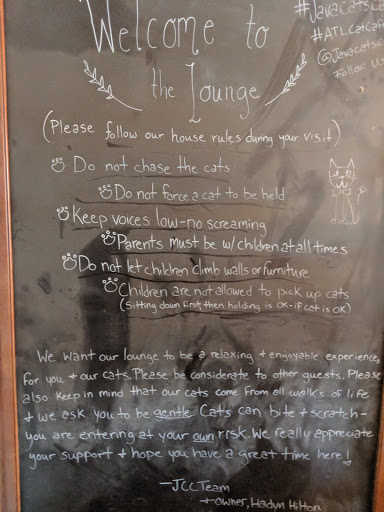 Welcome to
the Lounge
#JavaCatsCa
#ATLCatCaf
@Javacatsc
Follow Us
(Please follow our house rules during your visit)
Do not chase the cats
Do not force a cat to be held
Keep voices low-no screaming
Parents must be w/ children at all times
Do not let children climb walls or furniture
Children are not allowed to pick up cats
(Sitting down first, then holding is OK-if cat is OK)
We want our lounge to be a relaxing + enjoyable experience,
for you + our cats. Please be considerate to other guests. Please
also keep in mind that our cats come from all walks of life
+ we ask you to be gentle. Cats can bite + scratch-
you are entering at your own risk. We really appreciate
your support + hope you have a great time here!
-JCC Team
+ owner, Hadyn Hilton